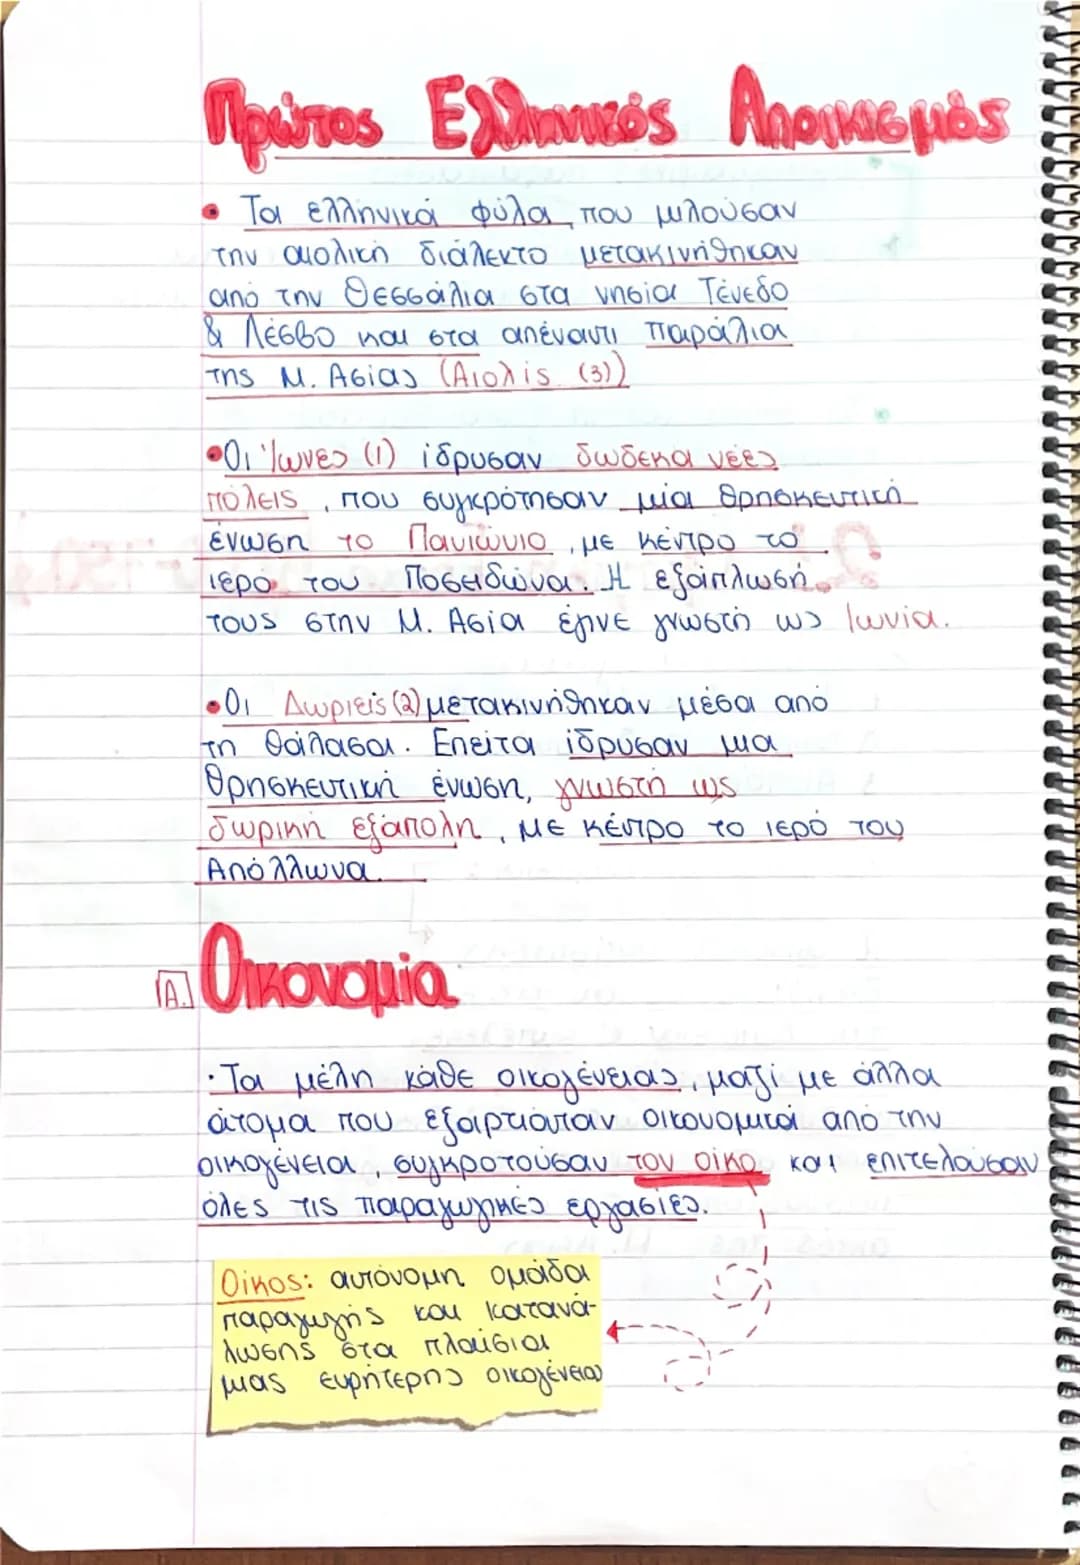 Πρώτος Ελληνικός Αποικισμός
• Τα ελληνικά φύλα που μιλούσαν
την αιολική διάλεκτο μετακινήθηκαν
από την Θεσσάλια στα νησία Τένεδο
& Λέσβο και στα απέναντι παράλια
της Μ. Ασίας (Αιολίς (3))
• Οι Ίωνες (1) ίδρυσαν δώδεκα νέες
πόλεις, που συγκρότησαν μία θρησκευτική
ένωση το Πανιώνιο, με κέντρο το
ιερο του Ποσειδώνα. Η εξάπλωσή
τους στην Μ. Ασία έγινε γνωστή ως Ιωνία.
• Οι Δωριείς (2) μετακινήθηκαν μέσα από
τη θάλασσα. Επείτα ίδρυσαν μια
θρησκευτική ένωση, γνωστή ως
δωρική εξάπολη, με κέντρο το ιερό του
Απόλλωνα.
Α. Οικονομία
· Τα μέλη κάθε οικογένειας, μαζί με άλλα
άτομα που εξαρτιόταν οικονομικά από την
οικογένεια συγκροτούσαν τον οίκο και επιτελούσαν
όλες τις παραγωγικές εργασίες.
Οίκος: αυτόνομη ομάδα
παραγωγής και κατανά-
λωσης στα πλαίσια
μιας ευρήτερης οικογένειας